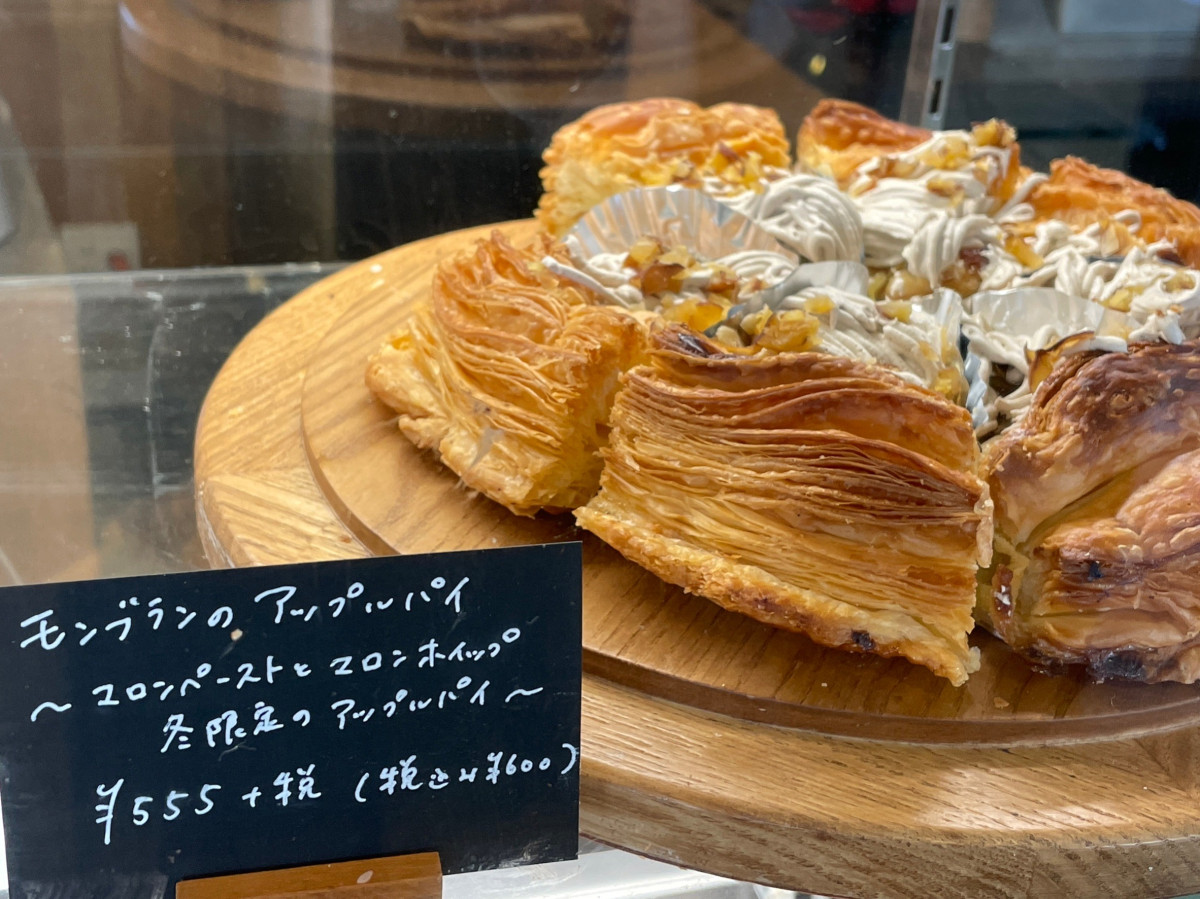 モンブランの アップルパイ
～ マロンペーストと マロンホイップ
冬限定の アップルパイ ～
¥555 +税 (税込み¥600)